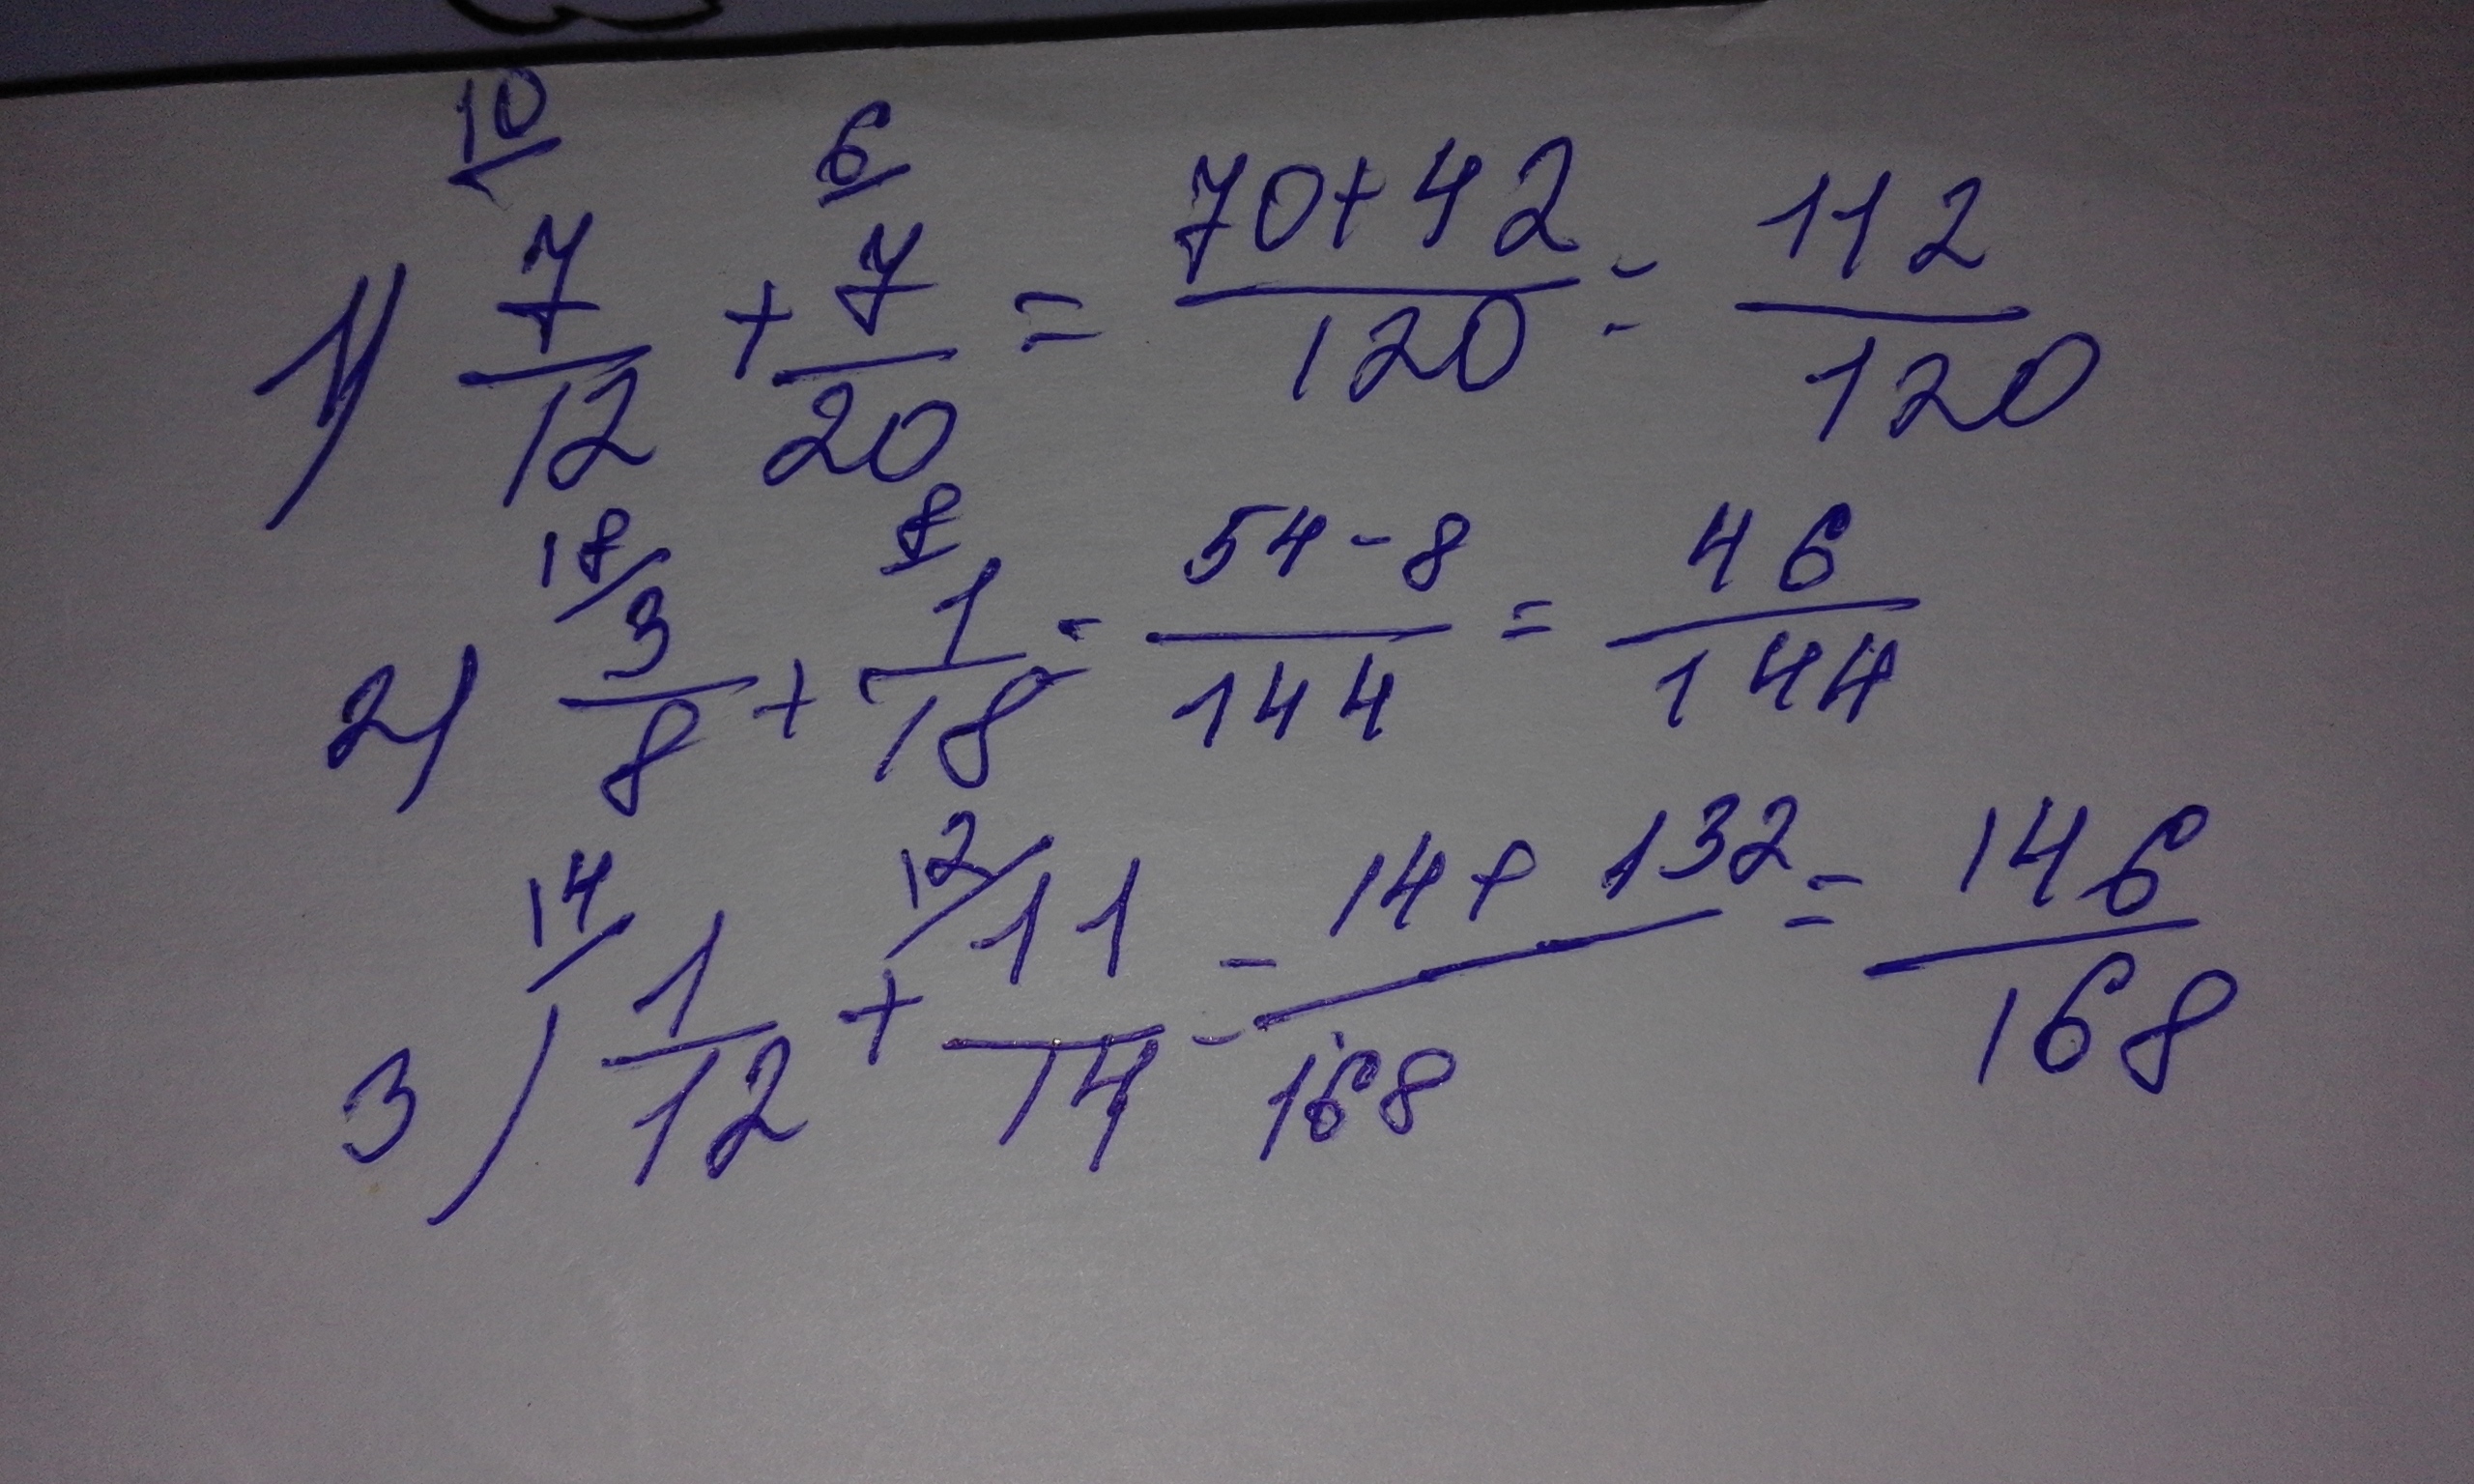 10 6
1) 7/12 + 7/20 = 70+42/120 = 112/120
18 8
2) 3/8 + 1/18 = 54-8/144 = 46/144
14 12
3) 1/12 + 11/14 = 14+132/168 = 146/168